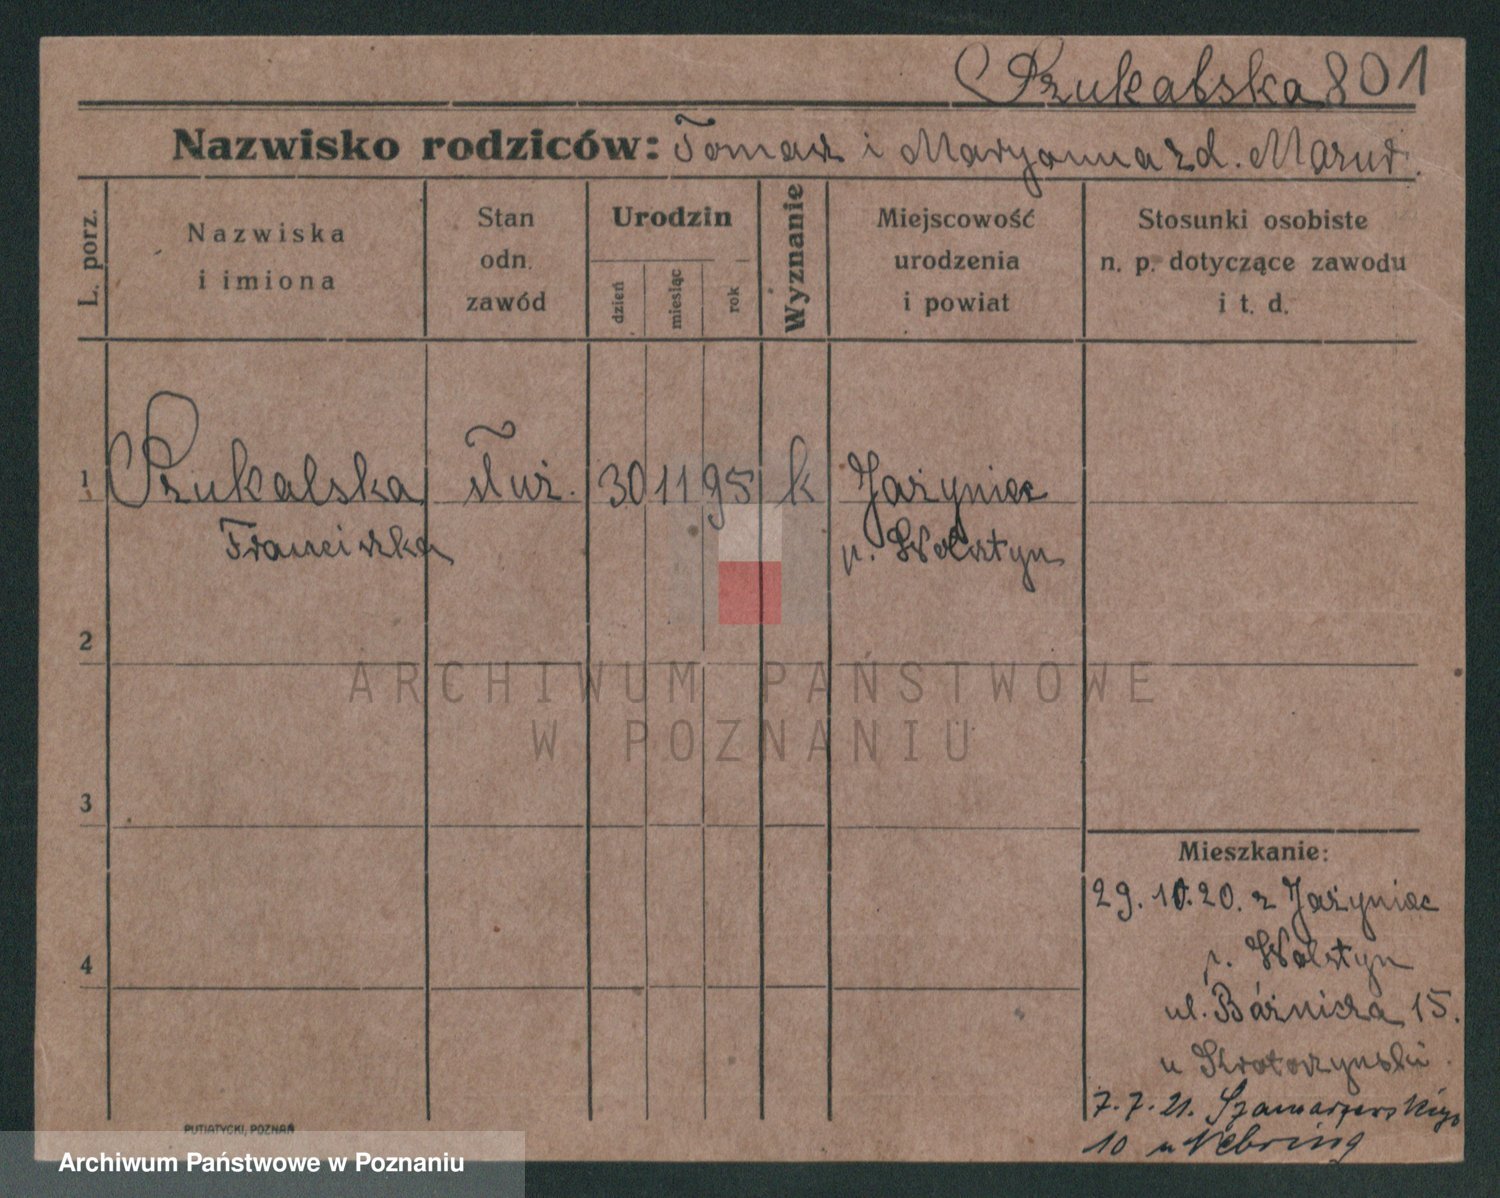 Szukalska 801
Nazwisko rodziców: Tomasz i Maryanna zd. Mazur.
L. porz.
Nazwiska
i imiona
Stan
odn.
zawód
Urodzin
dzień
miesiąc
rok
Wyznanie
Miejscowość
urodzenia
i powiat
Stosunki osobiste
n. p. dotyczące zawodu
i t. d.
1 Szukalska służ. 30 11 95 k Jażyniec
Franciszka p. Wolsztyn
2
ARCHIWUM PAŃSTWOWE
W POZNANIU
3
Mieszkanie:
29. 10. 20. z Jażyniec
4
p. Wolsztyn
ul. Bóżnicza 15.
u Krotoszynski
7. 7. 21. Szamarzewskiego
10 u Nebring
PUTIATYCKI, POZNAŃ
Archiwum Państwowe w Poznaniu